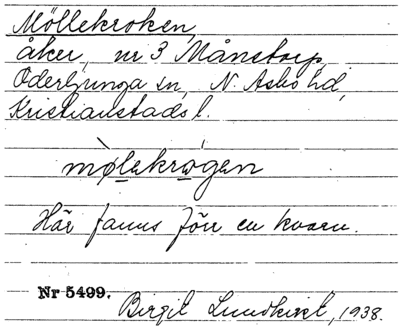 Möllekroken,
åker, nr 3 Månstorp,
Oderljunga sn, N. Asbo hd,
Kristianstads l.
mø̀lekrógen
Här fanns förr en kvarn.
Nr 5499.
Birgit Lundkvist, 1938.